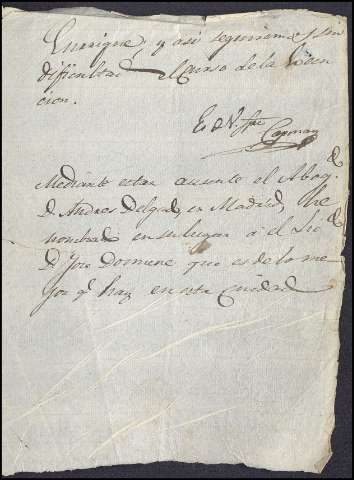 Enrrique, y asi seguiremos sin
difficultad el curso de la
cion.
Es de V. Afmo
Capmany
Mediante estar ausente el Abog.do
D. Andres Delgado, en Madrid, he
nombrado en su lugar á el Lic.do
D. Jose Domene que es de lo me
jor q.e hay en esta Ciudad